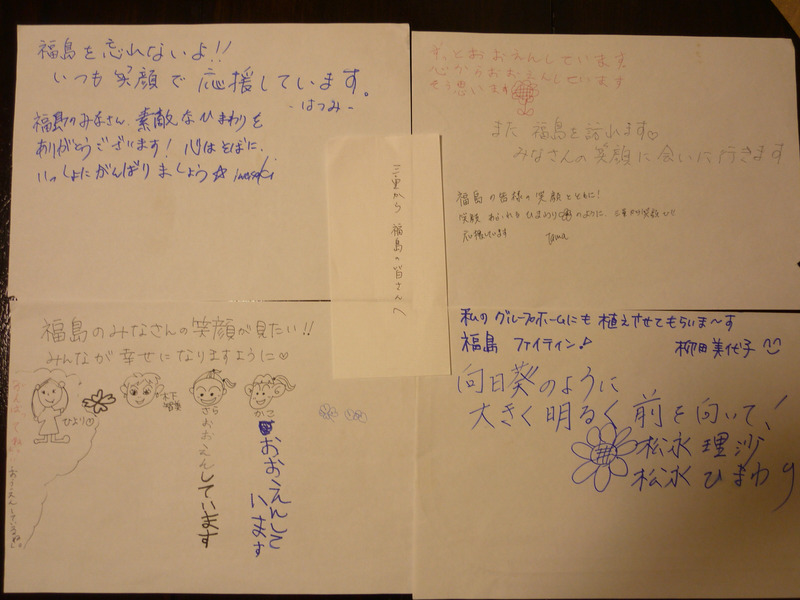 福島を忘れないよ!!
いつも笑顔で応援しています。
-はつみ-
福島のみなさん、素敵なひまわりを
ありがとうございます! 心はそばに、
いっしょにがんばりましょう☆
ずっとおおえんしています
心からおおえんしています
そう思います
また 福島を訪れます♡
みなさんの笑顔に会いに行きます
福島の皆様の笑顔とともに!
笑顔あふれるひまわりのように、三重から笑顔で
応援しています
三重から 福島の皆さんへ
福島のみなさんの笑顔が見たい!!
みんなが幸せになりますように♡
ひより
木下
さら
おおえんしています
かこ
おおえんして
います
がんばってね
おうえんしているね。
私のグループホームにも植えさせてもらいま〜す
福島 ファイティン♪ 柳田美代子
向日葵のように
大きく明るく前を向いて!
松永 理沙
松永 ひまわり